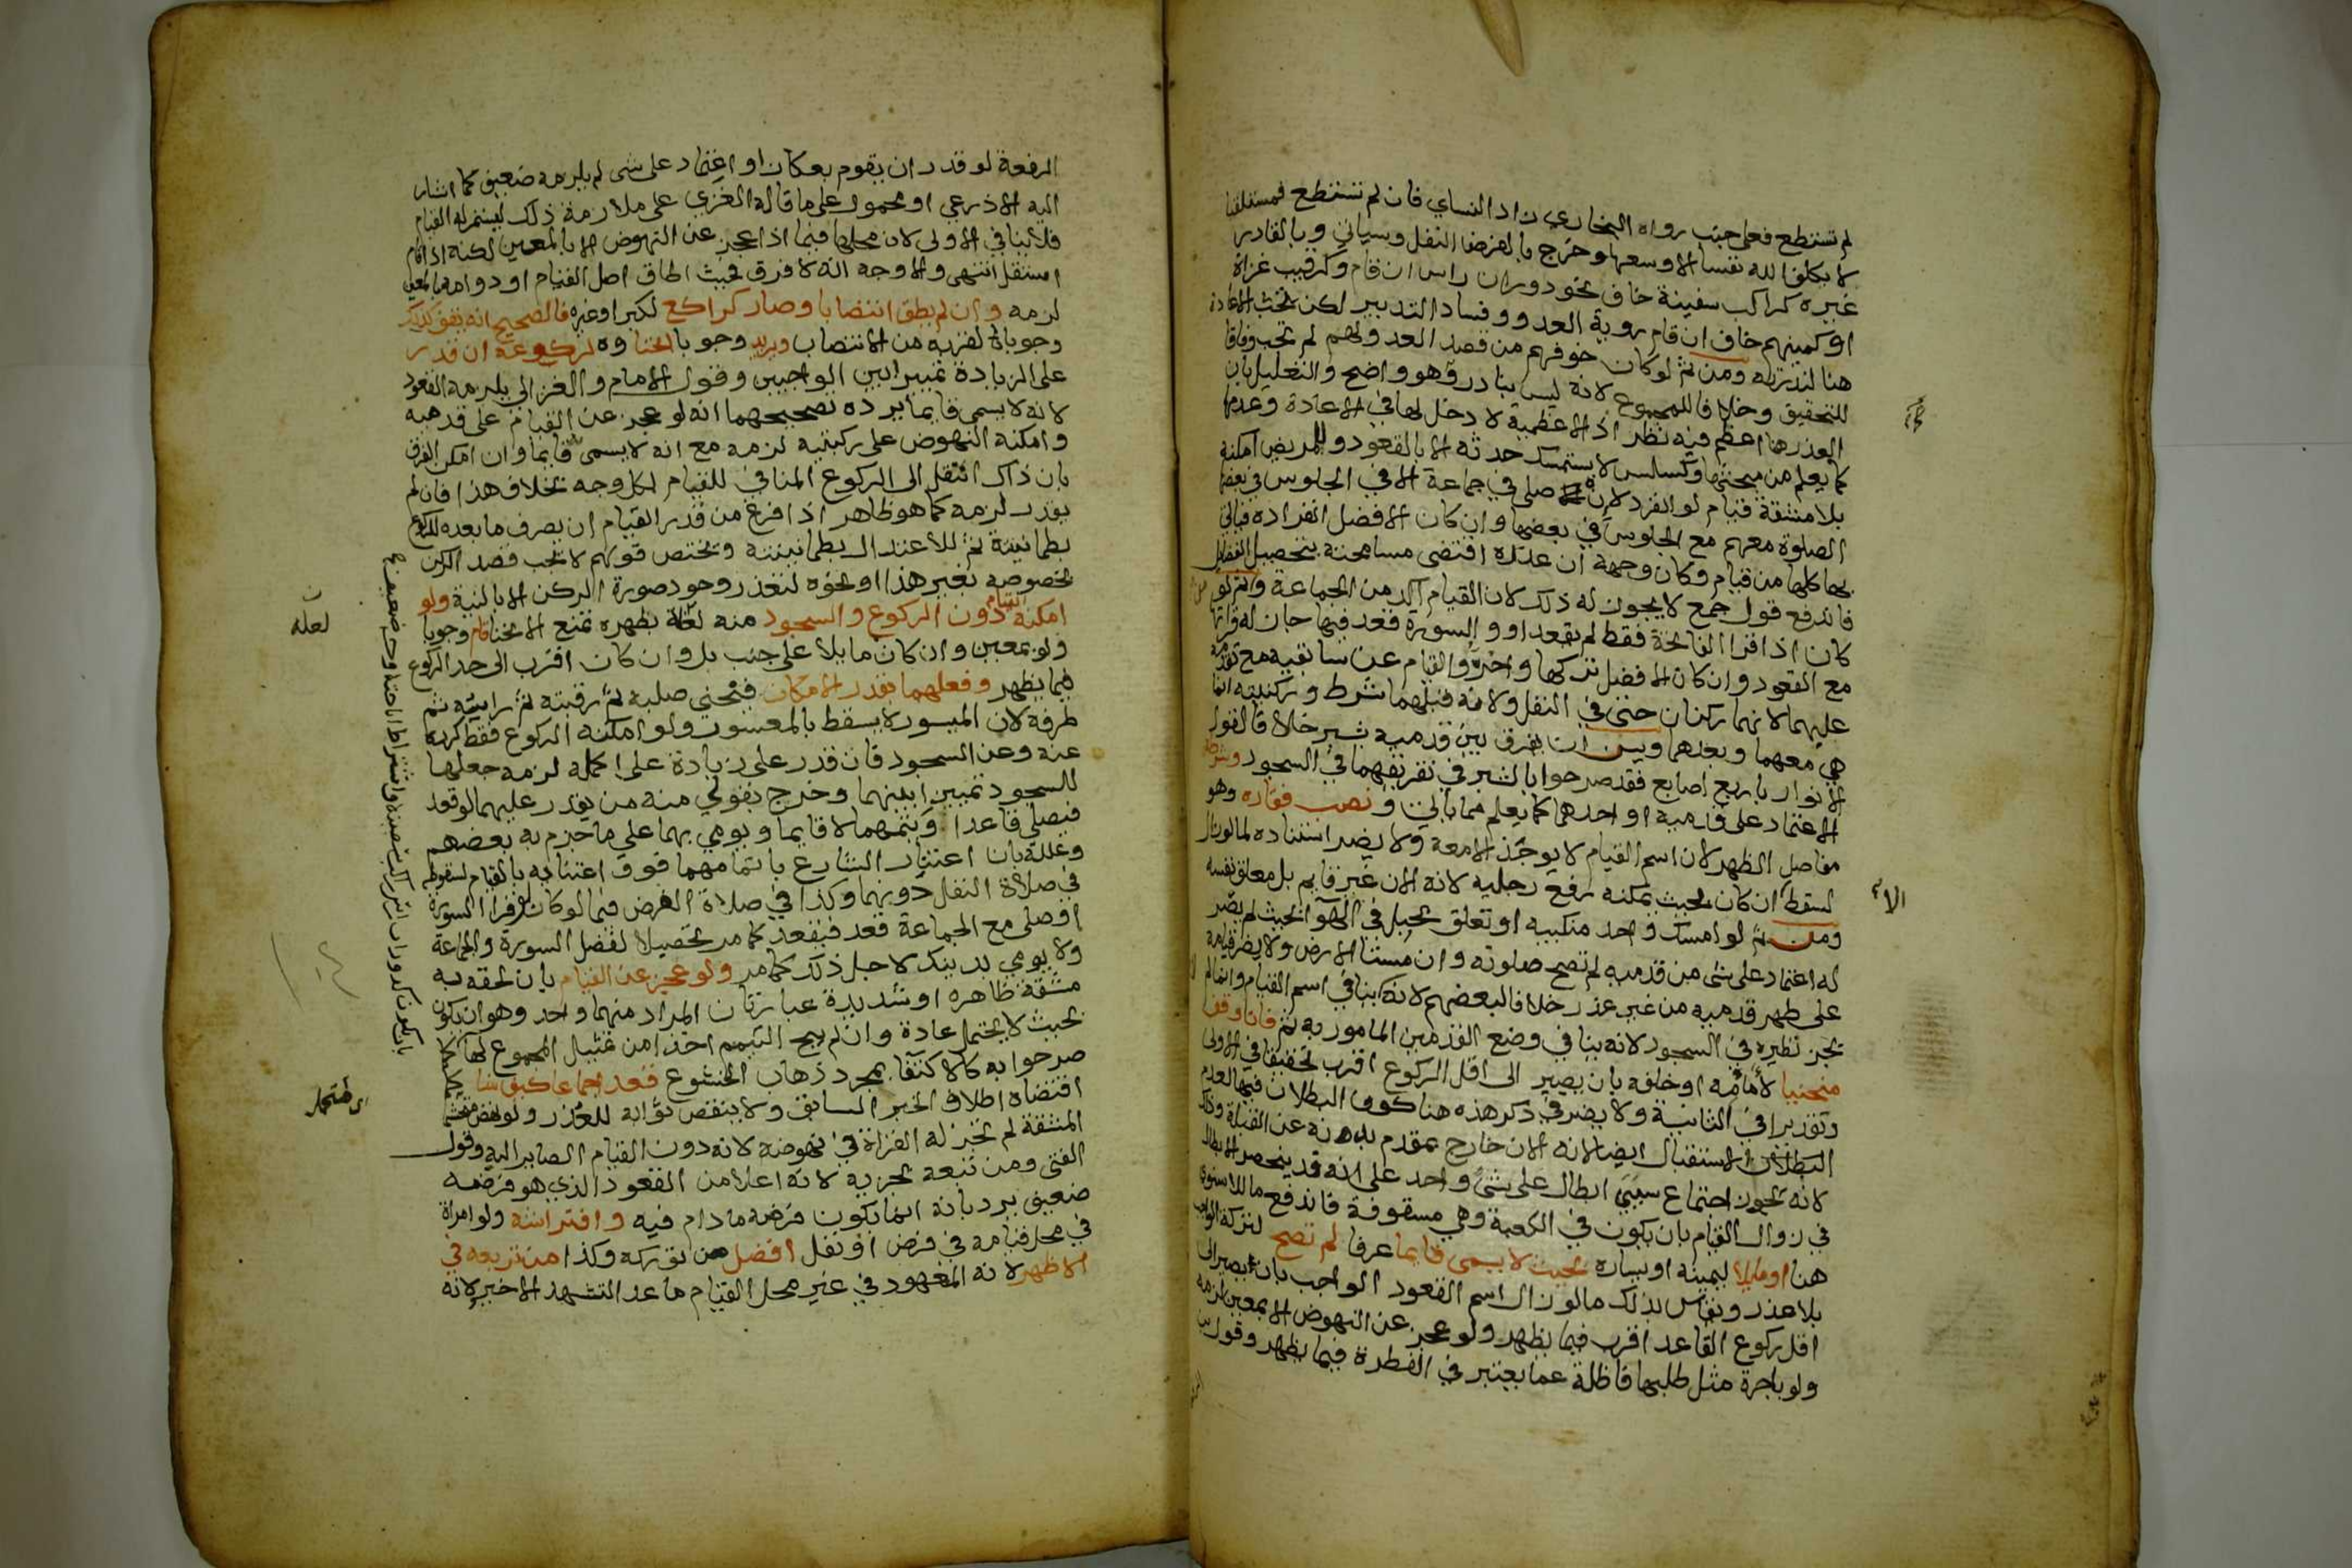 لم تستطع فعلى جنب رواه البخاري زاد النساي فان لم تستطع فمستلقيا
لا يكلف الله نفسا الا وسعها وخرج بالفرض النفل وسياتي وبالقادر
غيره كراكب سفينة خاف نحو دوران راس ان قام وكرقيب غزاة
او كمينهم خاف ان قام روية العدو وفساد التدبير لكن تجب الاعادة
هنا لندرته ومن ثم لو كان خوفهم من قصد العدو لهم لم تجب وفاقا
للتحقيق وخلافا للمجموع لانه ليس بنادر وهو واضح والتعليل بان
العذر هنا اعظم فيه نظر اذ الاعظمية لا دخل لها في الاعادة وعدمها
كما يعلم من مبحثها وكسلس لا يستمسك حدثه الا بالقعود وللمريض امكنه
بلا مشقة قيام لو انفرد لا ان صلى في جماعة الا في الجلوس في بعضها
الصلوة معهم مع الجلوس في بعضها وان كان الافضل انفراده فياتي
بها كلها من قيام وكان وجهه ان عذره اقتضى مسامحته بتحصيل الفضايل
فاندفع قول جمع لا يجوز له ذلك لان القيام آكد من الجماعة ومن ثم لو
كان اذا قرا الفاتحة فقط لم يقعد او والسورة قعد فيها جاز له قراتها
مع القعود وان كان الافضل تركها واخره والقيام عن سابقيه مع تقدمه
عليهما لانهما ركنان حتى في النفل ولانه قبلهما شرط وركنيته انما
هي معهما وبعدهما ويسن ان يفرق بين قدميه بشبر خلافا لقول
الانوار باربع اصابع فقد صرحوا بالشبر في تفريقهما في السجود وشرطه
الاعتماد على قدميه او احدهما كما يعلم مما ياتي ونصب فقاره وهو
مفاصل الظهر لان اسم القيام لا يوجد الا معه ولا يضر استناده لما لو زال
لسقط ان كان بحيث يمكنه رفع رجليه لانه الان غير قايم بل معلق نفسه
ومن ثم لو امسك واحد منكبيه او تعلق بحبل في الهوآ بحيث لم يصر
له اعتماد على شى من قدميه لم تصح صلوته وان مستا الارض ولا يضر قيامه
على ظهر قدميه من غير عذر خلافا لبعضهم لانه لا ينافي اسم القيام وانما لم
يجز نظيره في السجود لانه ينافي وضع القدمين المامور به ثم فان وقف
منحنيا لامامه او خلفه بان يصير الى اقل الركوع اقرب تحقيقا في الاولى
وتقديرا في الثانية ولا يضر في ذكر هذه هنا كون البطلان فيها لعدم
الاستقبال ايضا لانه الان خارج بمقدم بدنه عن القبلة وذلك
لانه يجوز اجتماع سببي ابطال على شى واحد على انه قد ينحصر الابطال
في زوال القيام بان يكون في الكعبة وهي مسقوفة فاندفع ما للاسنوي
هنا او مايلا ليمينه او يساره بحيث لا يسمى قايما عرفا لم تصح لتركه الواجب
بلا عذر ويقاس بذلك ما لو زال اسم القعود الواجب بان يصير الى
اقل ركوع القاعد اقرب فيما يظهر ولو عجز عن النهوض الا بمعين لزمه
ولو باجرة مثل طلبها فاضلة عما يعتبر في الفطرة فيما يظهر وقول ابن
الرفعة لو قدر ان يقوم بعكاز او اعتماد على شى لم يلزمه ضعيف كما اشار
اليه الاذرعي او محمول على ما قاله الغزي على ملازمة ذلك ليستمر له القيام
فلا ينافي الاولى لان محلها فيما اذا عجز عن النهوض الا بالمعين لكنه اذا قام
استقل انتهى والاوجه انه لا فرق فحيث اطاق اصل القيام او دوامه بالمعين
لزمه وان لم يطق انتصابا وصار كراكع لكبر او غيره فالصحيح انه يقف كذلك
وجوبا لقربه من الانتصاب ويزيد وجوبا انحناوه لركوعه ان قدر
على الزيادة تمييزا بين الواجبين وقول الامام والغزالي يلزمه القعود
لانه لا يسمى قايما يرده تصحيحهما انه لو عجز عن القيام على قدميه
وامكنه النهوض على ركبتيه لزمه مع انه لا يسمى قايما وان امكن الفرق
بان ذاك انتقل الى الركوع المنافي للقيام بكل وجه بخلاف هذا فان لم
يقدر لزمه كما هو ظاهر اذا فرغ من قدر القيام ان يصرف ما بعده للركوع
بطمانينة ثم للاعتدال بطمانينته ويختص قولهم لا يجب قصد الركن
بخصوصه بغير هذا او نحوه لتعذر وجود صورة الركن الا بالنية ولو
امكنه القيام دون الركوع والسجود منه لعلة بظهره تمنع الانحنا قام وجوبا
ولو بمعين وان كان مايلا على جنب بل وان كان اقرب الى حد الركوع
فيما يظهر وفعلهما بقدر الامكان فيحني صلبه ثم رقبته ثم راسه ثم
طرفه لان الميسور لا يسقط بالمعسور ولو امكنه الركوع فقط كرره
عنه وعن السجود فان قدر على زيادة على اكمله لزمه جعلها
للسجود تمييزا بينهما وخرج بقولي منه من يقدر عليهما لو قعد
فيصلي قاعدا ويتمهما لا قايما ويومي بهما على ما جزم به بعضهم
وعلله بان اعتنار الشارع باتمامهما فوق اعتنايه بالقيام لسقوطه
في صلاة النفل دونهما وكذا في صلاة الفرض فيما لو كان لو قرا السورة
او صلى مع الجماعة قعد فيقعد كما مر تحصيلا لفضل السورة والجماعة
ولا يومي بذينك لاجل ذلك كما مر ولو عجز عن القيام بان لحقه به
مشقة ظاهره او شديدة عبارتان المراد منهما واحد وهو ان يكون
بحيث لا يحتمل عادة وان لم يبح التيمم اخذا من تمثيل المجموع لها
صرحوا به كالاكتفا بمجرد ذهاب الخشوع قعد اجماعا كيف شا
اقتضاه اطلاق الخبر السابق ولا ينقص ثوابه للعذر ولو نهض
المشقة لم تجز له القراة في نهوضه لانه دون القيام الصاير اليه وقول
الفتى ومن تبعه تجزيه لانه اعلا من القعود الذي هو فرضه
ضعيف يرد بانه انما يكون فرضه ما دام فيه وافتراشه ولو امراة
في محل قيامه في فرض او نفل افضل من توركه وكذا من تربعه في
الاظهر لانه المعهود في غير محل القيام ما عدا التشهد الاخير لانه
لعله